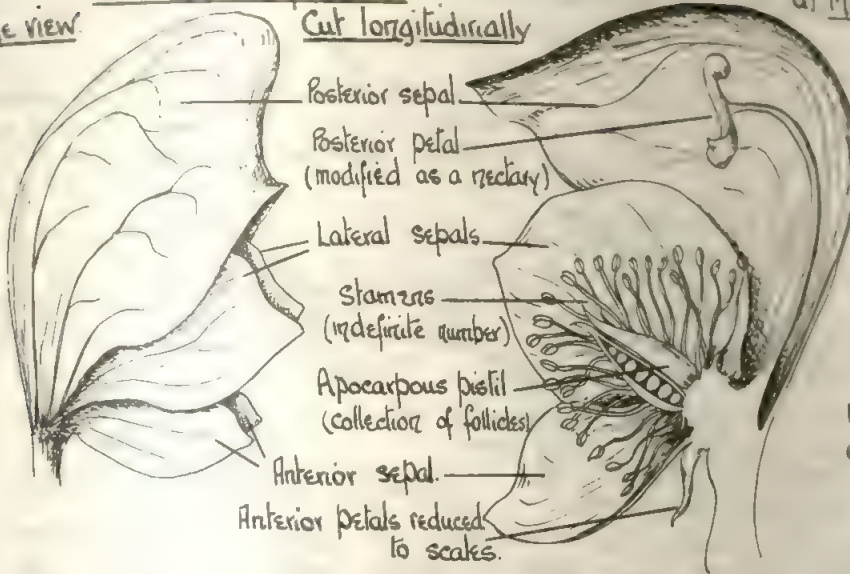 VIEW
Cut longitudinally
Posterior sepal
Posterior petal
(modified as a nectary)
Lateral sepals
Stamens
(indefinite number)
Apocarpous pistil
(collection of follicles)
Anterior sepal.
Anterior petals reduced
to scales.